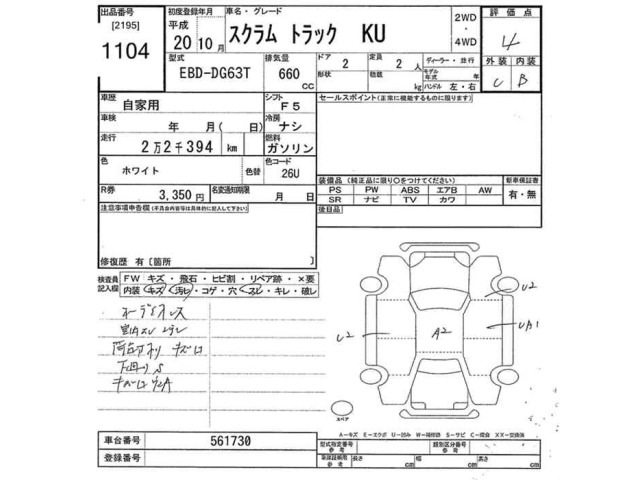 出品番号 初度登録年月 車名・グレード 2WD 評価点
[2195] 平成
1104 20年10月 スクラム トラック KU 4WD 4
型式 排気量 ドア 定員 ディーラー・並行 外装 内装
EBD-DG63T 660 CC 2 2人 モデル年式 年 C B
形状 積載 kg ハンドル 左・右
車歴 シフト セールスポイント(正常に機能するものに限ります)
自家用 F5
車検 冷房
年 月(日) ナシ
走行 燃料
2万2千394 km ガソリン
色 色替 色コード
ホワイト 26U 装備品(純正品に限り○をつけてください) 新車保証書
R券 名変通知期限 PS PW ABS エアB AW 有・無
3,350円 月 日 SR ナビ TV カワ
注意事項申告欄(不具合内容等は具体的に記入して下さい) 後日品
修復歴 有〔箇所 〕
検査員記入欄 FW キズ・飛石・ヒビ割・リペア跡・×要
内装 キズ・汚レ・コゲ・穴・スレ・キレ・破レ
U2
オーディオレス
U2 A2 UA1
スペア
A-キズ E-エクボ U-凹み W-補修跡 S-サビ C-腐食 XX-交換済
車台番号 561730 型式指定番号 参考 類別区分番号 参考
登録番号 車庫証明用 参考 長さ cm 幅 cm 高さ cm